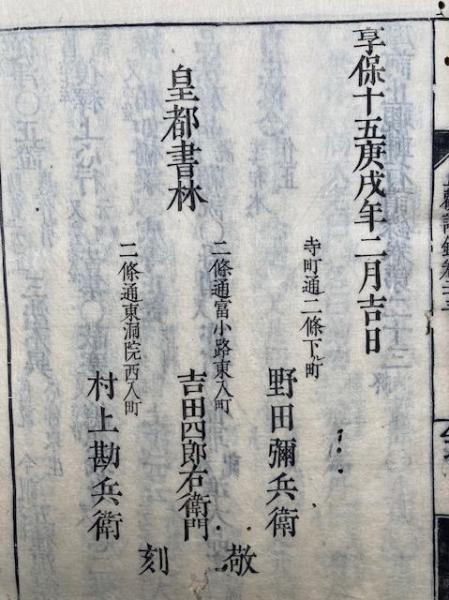 享保十五庚戌年二月吉日
皇都書林
寺町通二條下ル町
野田彌兵衛
二條通富小路東入町
吉田四郎右衛門
二條通東洞院西入町
村上勘兵衛
敬刻